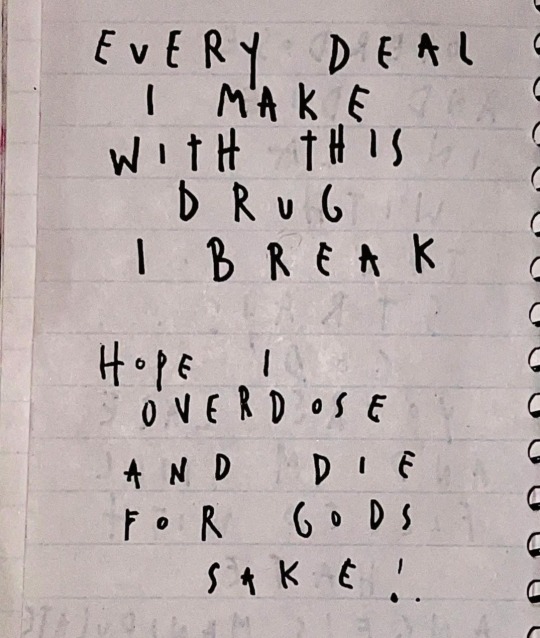 EVERY DEAL
I MAKE
WITH THIS
DRUG
I BREAK
HOPE I
OVERDOSE
AND DIE
FOR GODS
SAKE!